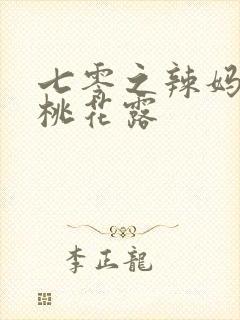 七零之辣妈
桃花露
李正龍